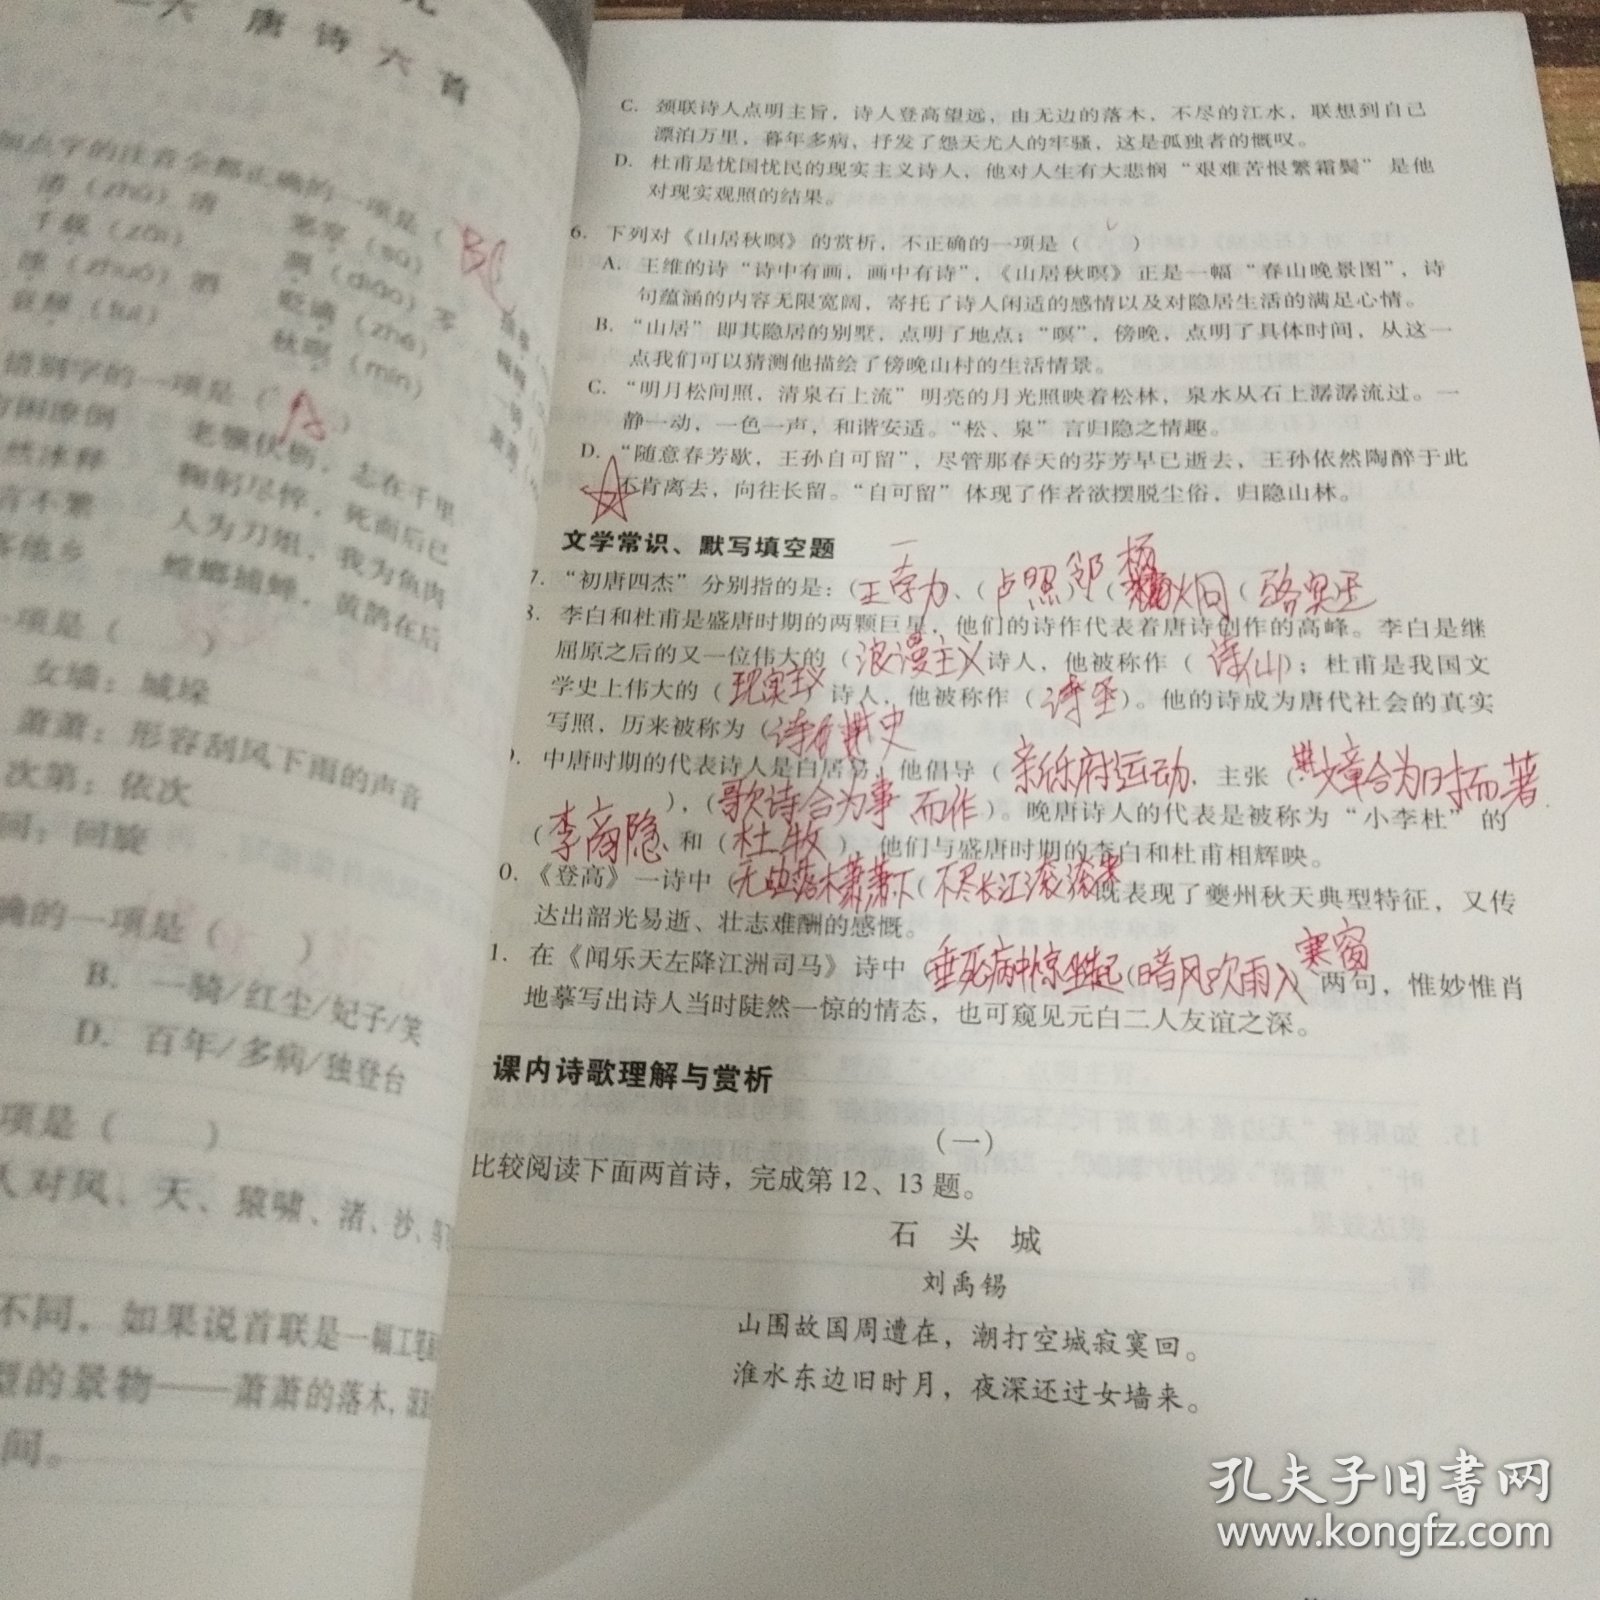 唐诗六首
加点字的注音全都正确的一项是（
BC
渚（zhǔ）清
千载（zǎi）
（zhuó）酒
错别字的一项是（ A ）
潦倒 老骥伏枥，志在千里
然冰释 鞠躬尽悴，死而后已
言不繁 人为刀俎，我为鱼肉
客他乡 螳螂捕蝉，黄鹊在后
一项是（ ）
女墙：城垛
萧萧：形容刮风下雨的声音
次第：依次
回：回旋
确的一项是（ ）
B. 一骑/红尘/妃子/笑
D. 百年/多病/独登台
项是（ ）
对风、天、猿啸、渚、沙、
不同。如果说首联是一幅工笔
型的景物——萧萧的落木，
间。
C. 颈联诗人点明主旨，诗人登高望远，由无边的落木，不尽的江水，联想到自己
漂泊万里，暮年多病，抒发了怨天尤人的牢骚，这是孤独者的慨叹。
D. 杜甫是忧国忧民的现实主义诗人，他对人生有大悲悯“艰难苦恨繁霜鬓”是他
对现实观照的结果。
6. 下列对《山居秋暝》的赏析，不正确的一项是（ ）
A. 王维的诗“诗中有画，画中有诗”，《山居秋暝》正是一幅“春山晚景图”，诗
句蕴涵的内容无限宽阔，寄托了诗人闲适的感情以及对隐居生活的满足心情。
B. “山居”即其隐居的别墅，点明了地点；“暝”，傍晚，点明了具体时间，从这一
点我们可以猜测他描绘了傍晚山村的生活情景。
C. “明月松间照，清泉石上流”明亮的月光照映着松林，泉水从石上潺潺流过。一
静一动，一色一声，和谐安适。“松、泉”言归隐之情趣。
D. “随意春芳歇，王孙自可留”，尽管那春天的芬芳早已逝去，王孙依然陶醉于此
不肯离去，向往长留。“自可留”体现了作者欲摆脱尘俗，归隐山林。
文学常识、默写填空题
7. “初唐四杰”分别指的是：（王勃、（卢照邻）、（杨炯（骆宾王
8. 李白和杜甫是盛唐时期的两颗巨星，他们的诗作代表着唐诗创作的高峰。李白是继
屈原之后的又一位伟大的（浪漫主义诗人，他被称作（诗仙）；杜甫是我国文
学史上伟大的（现实主义诗人，他被称作（诗圣）。他的诗成为唐代社会的真实
写照，历来被称为（诗史
9. 中唐时期的代表诗人是白居易，他倡导（新乐府运动、主张（文章合为时而著
），（歌诗合为事而作）。晚唐诗人的代表是被称为“小李杜”的
（李商隐、和（杜牧），他们与盛唐时期的李白和杜甫相辉映。
0. 《登高》一诗中（无边落木萧萧下（不尽长江滚滚来既表现了夔州秋天典型特征，又传
达出韶光易逝、壮志难酬的感慨。
1. 在《闻乐天左降江洲司马》诗中（垂死病中惊坐起（暗风吹雨入寒窗）两句，惟妙惟肖
地摹写出诗人当时陡然一惊的情态，也可窥见元白二人友谊之深。
课内诗歌理解与赏析
（一）
比较阅读下面两首诗，完成第12、13题。
石 头 城
刘禹锡
山围故国周遭在，潮打空城寂寞回。
淮水东边旧时月，夜深还过女墙来。
孔夫子旧书网
www.kongfz.com